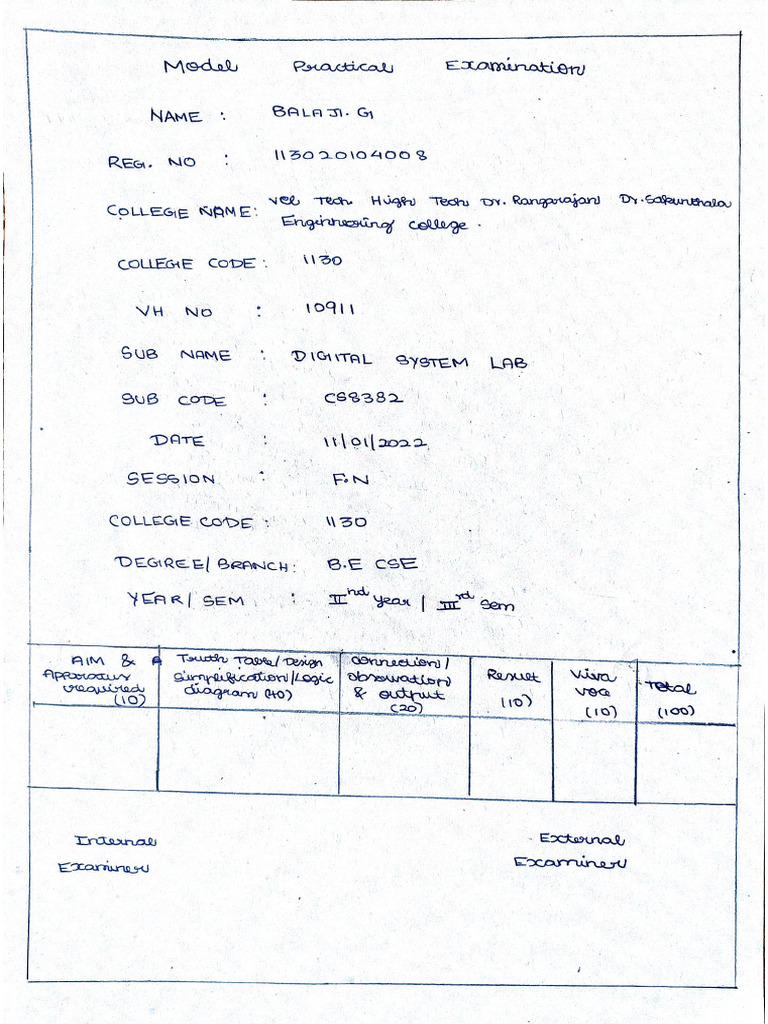 Model Practical Examination
NAME : BALAJI. G
REG. NO : 113020104008
COLLEGE NAME: Vel Tech High Tech Dr. Rangarajan Dr. Sakunthala
Enginnering college.
COLLEGE CODE: 1130
VH NO : 10911
SUB NAME : DIGITAL SYSTEM LAB
SUB CODE : CS8382
DATE : 11/01/2022
SESSION : F.N
COLLEGE CODE: 1130
DEGREE/ BRANCH: B.E CSE
YEAR/ SEM : II nd year / III rd sem
AIM & A
Apparatus
required
(10)
Truth Table/ Design
Simplification/Logic
diagram (40)
Connection/
observation
& output
(20)
Result
(10)
Viva
voce
(10)
Total
(100)
Internal
Examiner
External
Examiner